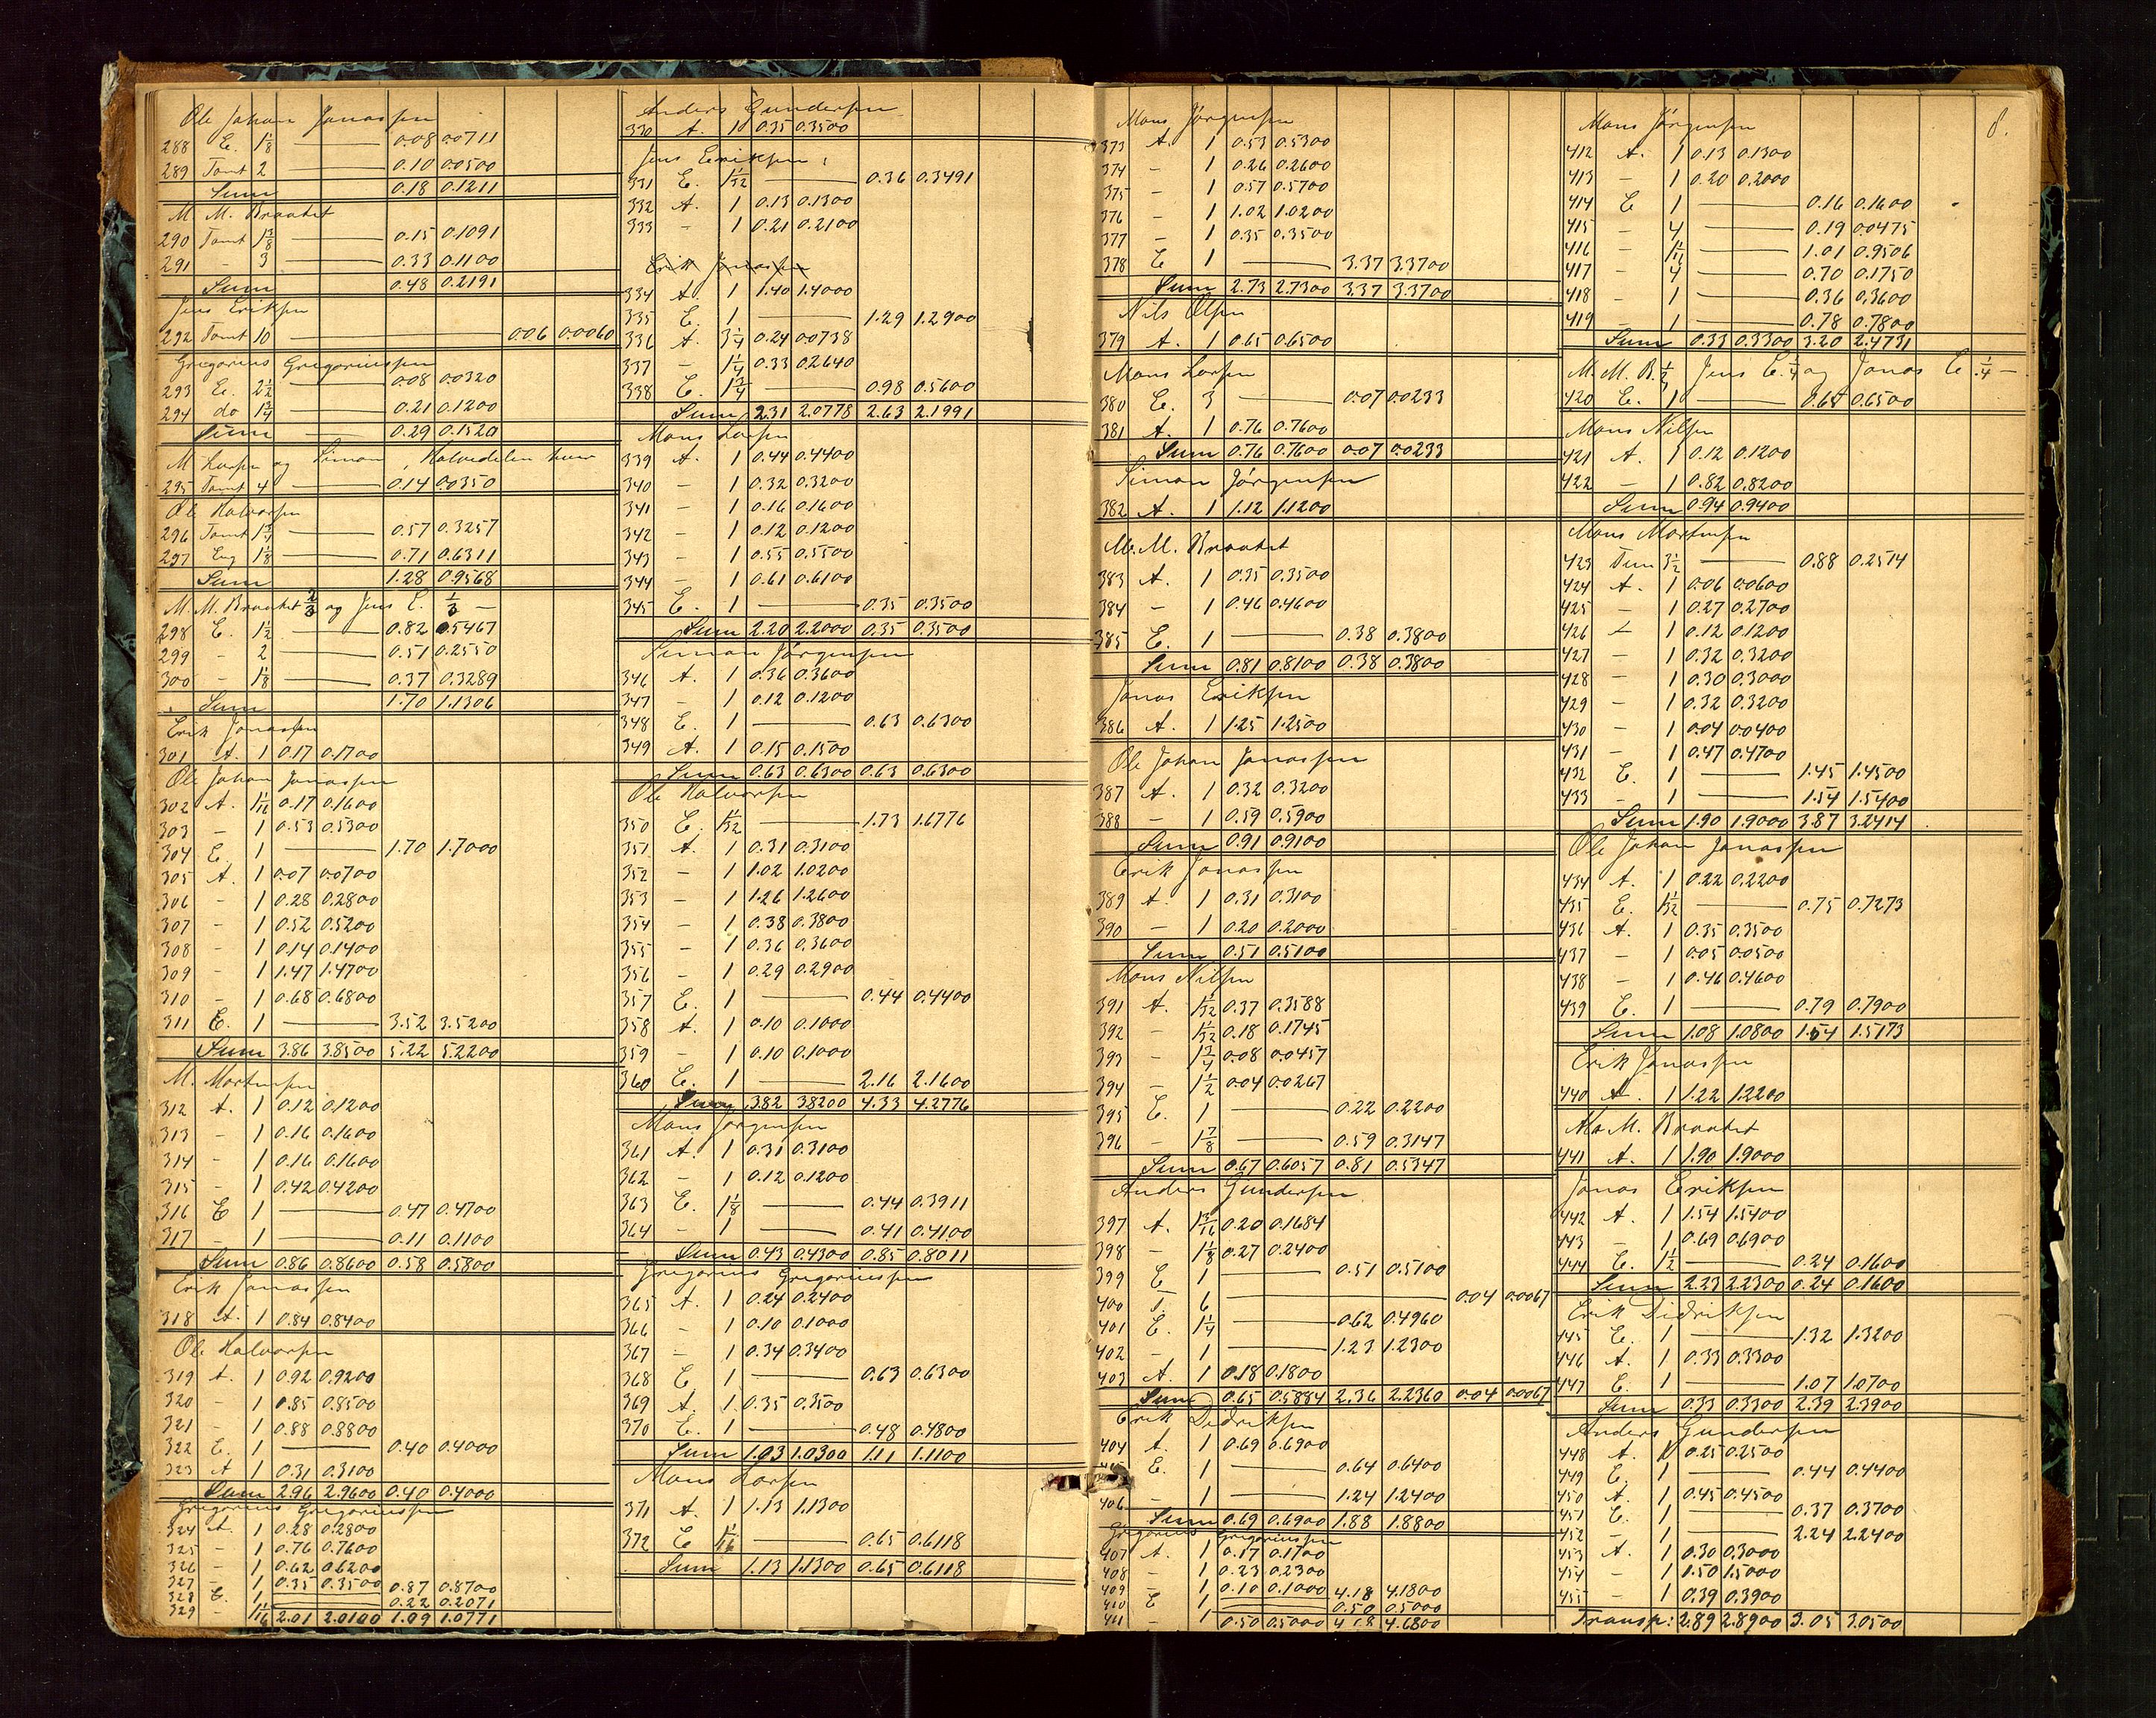 Ole Johan Jonassen
288 E. 1 1/8 — 0.08 0.0711
289 Tomt 2 — 0.10 0.0500
Sum 0.18 0.1211
M. M. Braatet
290 Tomt 1 3/8 — 0.15 0.1091
291 - 3 — 0.33 0.1100
Sum 0.48 0.2191
Jens Eriksen
292 Tomt 10 — 0.06 0.0060
Gregorius Gregoriussen
293 E. 2 1/2 — 0.08 0.0320
294 do 1 3/4 — 0.21 0.1200
Sum — 0.29 0.1520
M. Larsen og Simon, Halvedelen hver
295 Tomt 4 — 0.14 0.0350
Ole Halvorsen
296 Tomt 1 3/4 — 0.57 0.3257
297 Eng 1 1/8 — 0.71 0.6311
Sum 1.28 0.9568
M. M. Braatet 2/3 og Jens E. 1/3 —
298 E. 1 1/2 — 0.82 0.5467
299 - 2 — 0.51 0.2550
300 - 1 1/8 — 0.37 0.3289
Sum 1.70 1.1306
Erik Jonassen
301 A. 1 0.17 0.1700
Ole Johan Jonassen
302 A. 1 1/16 0.17 0.1600
303 - 1 0.53 0.5300
304 E. 1 — 1.70 1.7000
305 A. 1 0.07 0.0700
306 - 1 0.28 0.2800
307 - 1 0.52 0.5200
308 - 1 0.14 0.1400
309 - 1 1.47 1.4700
310 - 1 0.68 0.6800
311 E. 1 — 3.52 3.5200
Sum 3.86 3.8500 5.22 5.2200
M. Mortensen
312 A. 1 0.12 0.1200
313 - 1 0.16 0.1600
314 - 1 0.16 0.1600
315 - 1 0.42 0.4200
316 E 1 — 0.47 0.4700
317 - 1 — 0.11 0.1100
Sum 0.86 0.8600 0.58 0.5800
Erik Jonassen
318 A. 1 0.84 0.8400
Ole Halvorsen
319 A. 1 0.92 0.9200
320 - 1 0.85 0.8500
321 - 1 0.88 0.8800
322 E. 1 — 0.40 0.4000
323 A 1 0.31 0.3100
Sum 2.96 2.9600 0.40 0.4000
Gregorius Gregoriussen
324 A. 1 0.28 0.2800
325 - 1 0.76 0.7600
326 - 1 0.62 0.6200
327 - 1 0.35 0.3500 0.87 0.8700
328 E. 1 — 0.22 0.2071
329 - 1 1/16 2.01 2.0100 1.09 1.0771
Anders Gundersen
330 A. 1 0.35 0.3500
Jens Eriksen
331 E. 1 1/32 — 0.36 0.3491
332 A. 1 0.13 0.1300
333 - 1 0.21 0.2100
Erik Jonassen
334 A. 1 1.40 1.4000
335 E. 1 — 1.29 1.2900
336 A. 3 1/4 0.24 0.0738
337 - 1 1/4 0.33 0.2640
338 E. 1 3/4 — 0.98 0.5600
Sum 2.31 2.0778 2.63 2.1991
Mons Larsen
339 A. 1 0.44 0.4400
340 - 1 0.32 0.3200
341 - 1 0.16 0.1600
342 - 1 0.12 0.1200
343 - 1 0.55 0.5500
344 - 1 0.61 0.6100
345 E. 1 — 0.35 0.3500
Sum 2.20 2.2000 0.35 0.3500
Simon Jörgensen
346 A. 1 0.36 0.3600
347 - 1 0.12 0.1200
348 E. 1 — 0.63 0.6300
349 A. 1 0.15 0.1500
Sum 0.63 0.6300 0.63 0.6300
Ole Halvorsen
350 E. 1 1/32 — 1.73 1.6776
351 A. 1 0.31 0.3100
352 - 1 1.02 1.0200
353 - 1 1.26 1.2600
354 - 1 0.38 0.3800
355 - 1 0.36 0.3600
356 - 1 0.29 0.2900
357 E. 1 — 0.44 0.4400
358 A. 1 0.10 0.1000
359 - 1 0.10 0.1000
360 E. 1 — 2.16 2.1600
Sum 3.82 3.8200 4.33 4.2776
Mons Jörgensen
361 A. 1 0.31 0.3100
362 - 1 0.12 0.1200
363 E. 1 1/8 — 0.44 0.3911
364 - 1 — 0.41 0.4100
Sum 0.43 0.4300 0.85 0.8011
Gregorius Gregoriussen
365 A. 1 0.24 0.2400
366 - 1 0.10 0.1000
367 - 1 0.34 0.3400
368 E 1 — 0.63 0.6300
369 A. 1 0.35 0.3500
370 E. 1 — 0.48 0.4800
Sum 1.03 1.0300 1.11 1.1100
Mons Larsen
371 A. 1 1.13 1.1300
372 E 1 1/16 — 0.65 0.6118
Sum 1.13 1.1300 0.65 0.6118
Mons Jörgensen
373 A. 1 0.53 0.5300
374 - 1 0.26 0.2600
375 - 1 0.57 0.5700
376 - 1 1.02 1.0200
377 - 1 0.35 0.3500
378 E 1 — 3.37 3.3700
Sum 2.73 2.7300 3.37 3.3700
Nils Olsen
379 A. 1 0.65 0.6500
Mons Larsen
380 E. 3 — 0.07 0.0233
381 A. 1 0.76 0.7600
Sum 0.76 0.7600 0.07 0.0233
Simon Jörgensen
382 A. 1 1.12 1.1200
M. M. Braatet
383 A. 1 0.35 0.3500
384 - 1 0.46 0.4600
385 E. 1 — 0.38 0.3800
Sum 0.81 0.8100 0.38 0.3800
Jonas Eriksen
386 A. 1 1.25 1.2500
Ole Johan Jonassen
387 A. 1 0.32 0.3200
388 - 1 0.59 0.5900
Sum 0.91 0.9100
Erik Jonassen
389 A. 1 0.31 0.3100
390 - 1 0.20 0.2000
Sum 0.51 0.5100
Mons Nilsen
391 A. 1 1/32 0.37 0.3588
392 - 1 1/32 0.18 0.1745
393 - 1 3/4 0.08 0.0457
394 - 1 1/2 0.04 0.0267
395 E. 1 — 0.22 0.2200
396 - 1 7/8 — 0.59 0.3147
Sum 0.67 0.6057 0.81 0.5347
Anders Gundersen
397 A. 1 3/16 0.20 0.1684
398 - 1 1/8 0.27 0.2400
399 E 1 — 0.51 0.5100
400 T. 6 — 0.04 0.0067
401 E. 1 1/4 — 0.62 0.4960
402 - 1 — 1.23 1.2300
403 A. 1 0.18 0.1800
Sum 0.65 0.5884 2.36 2.2360 0.04 0.0067
Erik Didriksen
404 A. 1 0.69 0.6900
E. 1 — 0.64 0.6400
406 - 1 — 1.24 1.2400
Sum 0.69 0.6900 1.88 1.8800
Gregorius Gregoriussen
407 A. 1 0.17 0.1700
408 - 1 0.23 0.2300
409 - 1 0.10 0.1000 4.18 4.1800
410 E 1 — 0.50 0.5000
411 - 1 0.50 0.5000 4.68 4.6800
8.
Mons Jörgensen
412 A. 1 0.13 0.1300
413 - 1 0.20 0.2000
414 E 1 — 0.16 0.1600
415 - 4 — 0.19 0.0475
416 - 1 1/16 — 1.01 0.9506
417 - 4 — 0.70 0.1750
418 - 1 — 0.36 0.3600
419 - 1 — 0.78 0.7800
Sum 0.33 0.3300 3.20 2.4731
M. M. B. 1/2 Jens E. 1/4 og Jonas E. 1/4 —
420 E. 1 — 0.65 0.6500
Mons Nilsen
421 A. 1 0.12 0.1200
422 - 1 0.82 0.8200
Sum 0.94 0.9400
Mons Mortensen
423 Tun 3 1/2 — 0.88 0.2514
424 A. 1 0.06 0.0600
425 - 1 0.27 0.2700
426 - 1 0.12 0.1200
427 - 1 0.32 0.3200
428 - 1 0.30 0.3000
429 - 1 0.32 0.3200
430 - 1 0.04 0.0400
431 - 1 0.47 0.4700
432 E. 1 — 1.45 1.4500
433 - 1 — 1.54 1.5400
Sum 1.90 1.9000 3.87 3.2414
Ole Johan Jonassen
434 A. 1 0.22 0.2200
435 E. 1 1/32 — 0.75 0.7273
436 A. 1 0.35 0.3500
437 - 1 0.05 0.0500
438 - 1 0.46 0.4600
439 E. 1 — 0.79 0.7900
Sum 1.08 1.0800 1.54 1.5173
Erik Jonassen
440 A. 1 1.22 1.2200
M. M. Braatet
441 A. 1 1.90 1.9000
Jonas Eriksen
442 A. 1 1.54 1.5400
443 - 1 0.69 0.6900
444 E. 1 1/2 — 0.24 0.1600
Sum 2.23 2.2300 0.24 0.1600
Erik Didriksen
445 E. 1 — 1.32 1.3200
446 A. 1 0.33 0.3300
447 E. 1 — 1.07 1.0700
Sum 0.33 0.3300 2.39 2.3900
Anders Gundersen
448 A. 1 0.25 0.2500
449 E. 1 — 0.44 0.4400
450 A. 1 0.45 0.4500
451 E. 1 — 0.37 0.3700
452 - 1 — 2.24 2.2400
453 A. 1 0.30 0.3000
454 - 1 1.50 1.5000
455 - 1 0.39 0.3900
Transp: 2.89 2.8900 3.05 3.0500